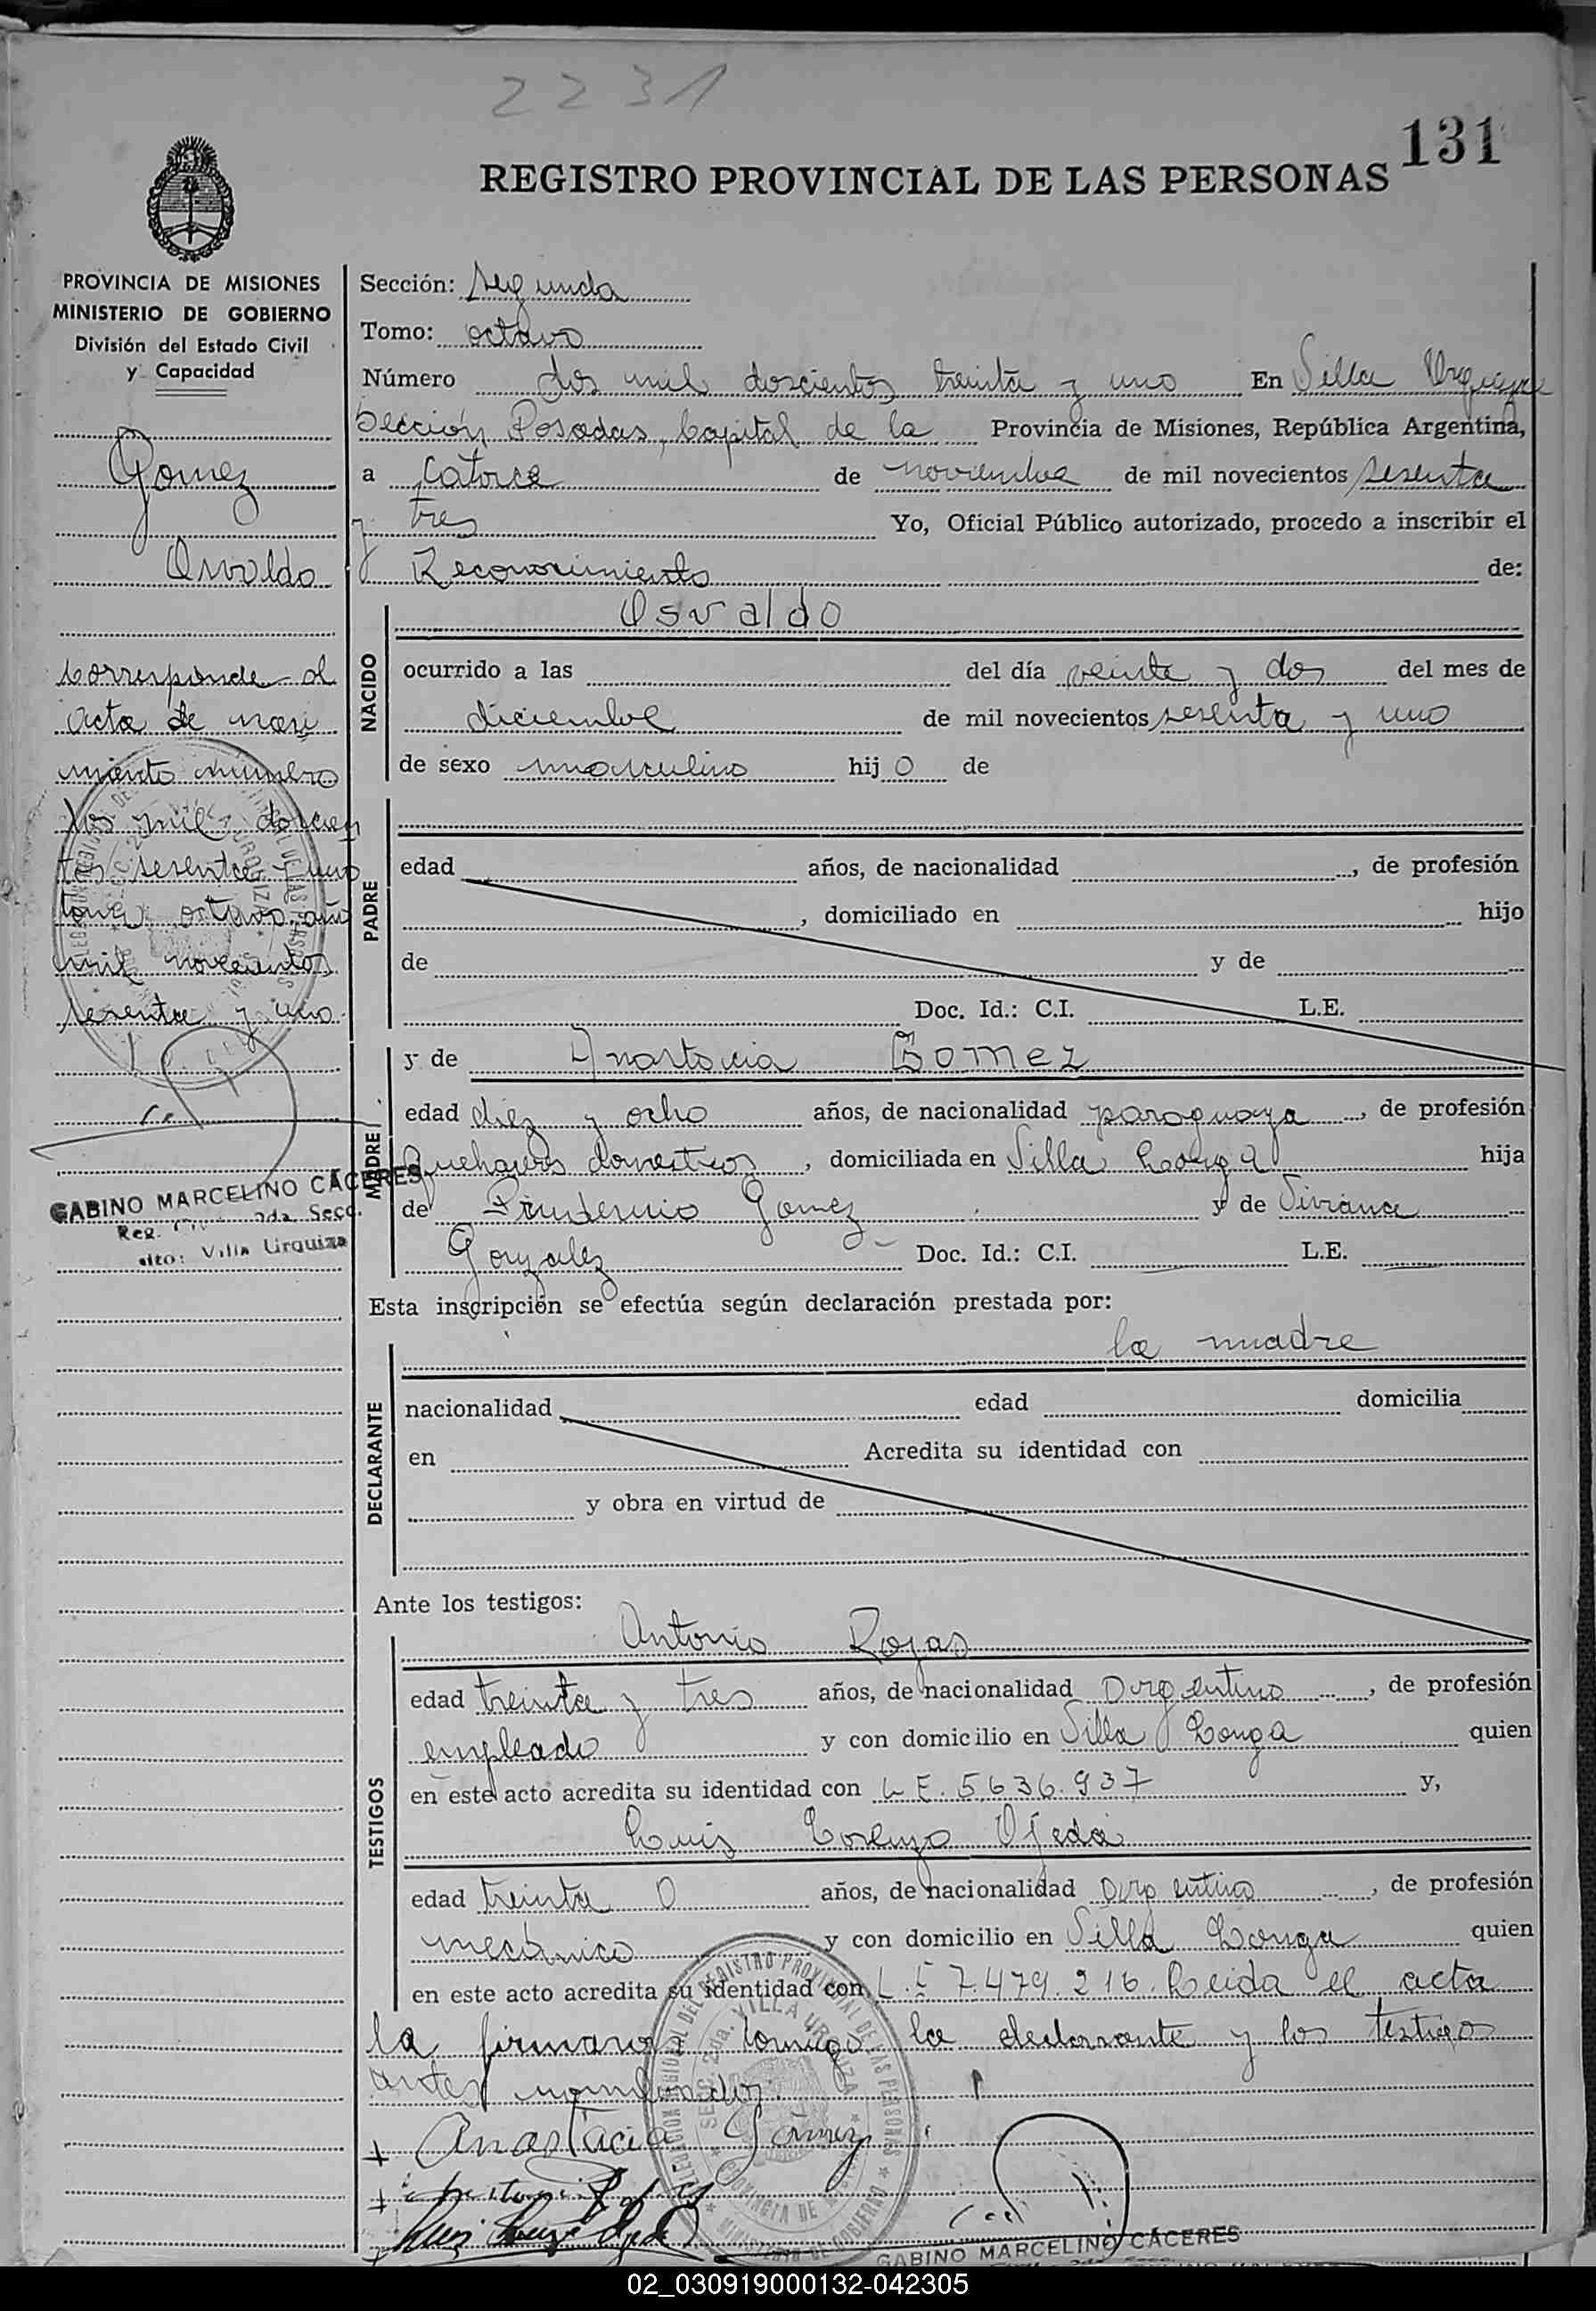 2231
131
REGISTRO PROVINCIAL DE LAS PERSONAS
PROVINCIA DE MISIONES
MINISTERIO DE GOBIERNO
División del Estado Civil
y Capacidad
Gomez
Osvaldo
Corresponde al
acta de naci
miento numero
dos mil doscien
tos sesenta y uno
tomo octavo año
mil novecientos
sesenta y uno
GABINO MARCELINO CACERES
Reg. 2da. Secc.
Villa Urquiza
Sección: Segunda
Tomo: octavo
Número dos mil doscientos treinta y uno En Villa Urquiza
Sección Posadas, Capital de la Provincia de Misiones, República Argentina,
a catorce de noviembre de mil novecientos sesenta
y tres Yo, Oficial Público autorizado, procedo a inscribir el
Reconocimiento de:
NACIDO
Osvaldo
ocurrido a las del día veinte y dos del mes de
diciembre de mil novecientos sesenta y uno
de sexo masculino hijo de
PADRE
edad años, de nacionalidad , de profesión
, domiciliado en hijo
de y de
Doc. Id.: C.I. L.E.
MADRE
y de Anastacia Gomez
edad diez y ocho años, de nacionalidad paraguaya , de profesión
Quehaceres domesticos , domiciliada en Villa Longa hija
de Prudencio Gomez y de Viviana
Gonzalez Doc. Id.: C.I. L.E.
Esta inscripción se efectúa según declaración prestada por:
la madre
DECLARANTE
nacionalidad edad domicilia
en Acredita su identidad con
y obra en virtud de
Ante los testigos:
TESTIGOS
Antonio Rojas
edad treinta y tres años, de nacionalidad Argentino , de profesión
empleado y con domicilio en Villa Longa quien
en este acto acredita su identidad con L E. 5.636.937 y,
Luis Lorenzo Ojeda
edad treinta años, de nacionalidad Argentino , de profesión
mecánico y con domicilio en Villa Longa quien
en este acto acredita su identidad con L.E 7.479.216. Leida el acta
la firman conmigo la declarante y los testigos
antes nombrados.
Anastacia Gómez
Luis Lorenzo Ojeda
GABINO MARCELINO CACERES
02_030919000132-042305